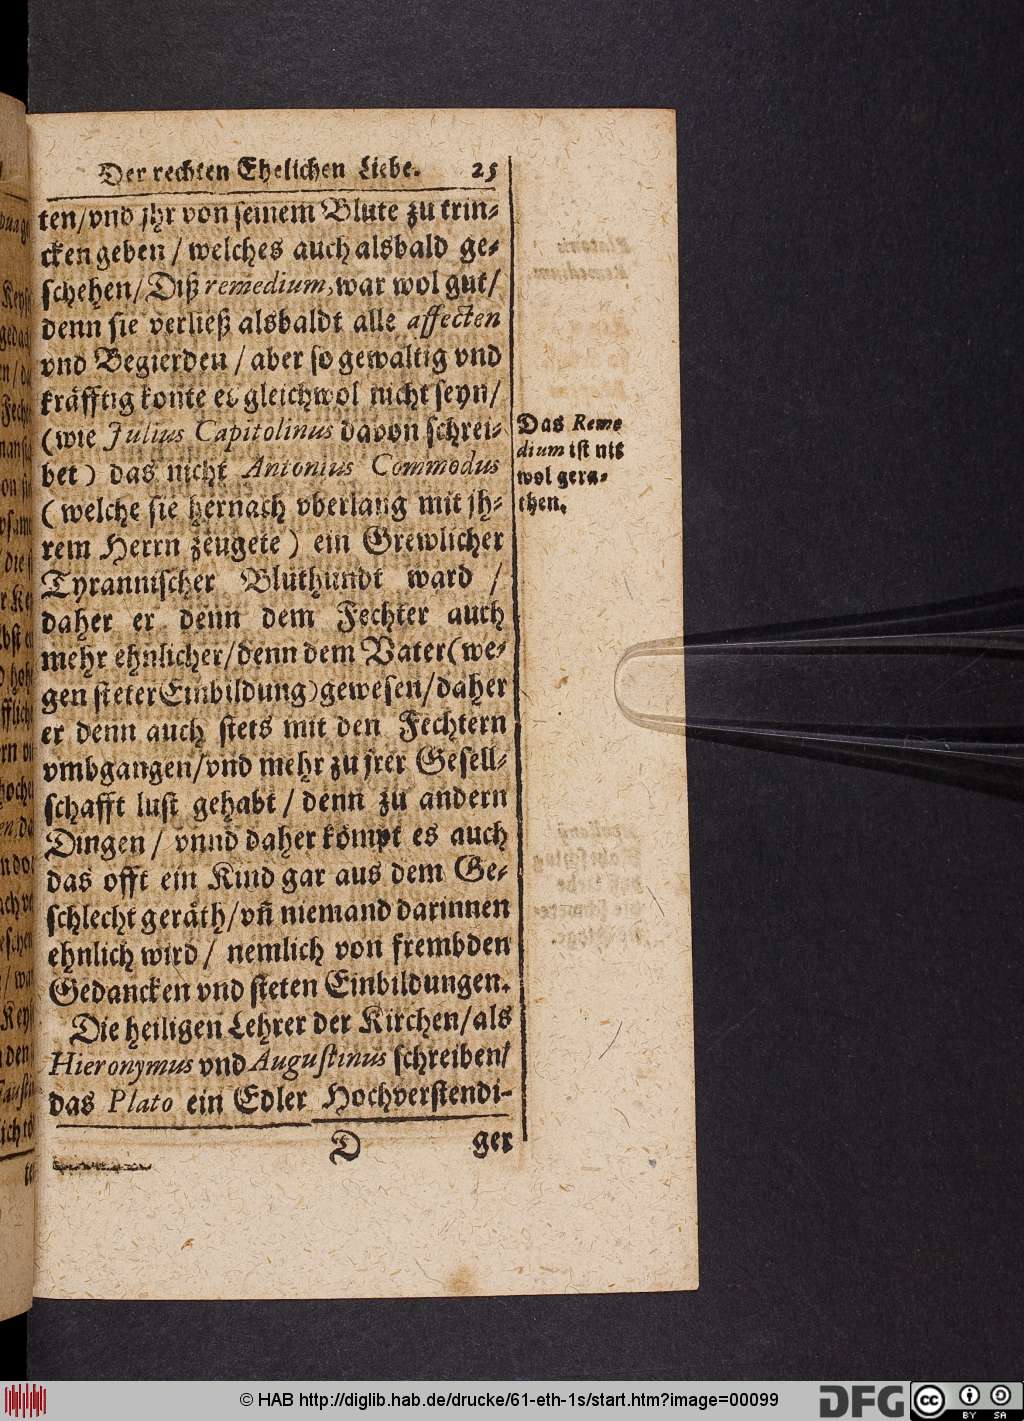 Der rechten Ehelichen Liebe. 25
ten/vnd jhr von seinem Blute zu trin-
cken geben / welches auch alsbald ge-
schehen/ Diß remedium, war wol gut/
denn sie verließ alsbaldt alle affecten
vnd Begierden / aber so gewaltig vnd
kräfftig konte es gleichwol nicht seyn/
(wie Julius Capitolinus davon schrei-
bet) das nicht Antonius Commodus
(welche sie hernach vberlang mit jh-
rem Herrn zeugete) ein Grewlicher
Tyrannischer Bluthundt ward /
daher er denn dem Fechter auch
mehr ehnlicher/denn dem Vater(we-
gen steter Einbildung)gewesen/daher
er denn auch stets mit den Fechtern
vmbgangen/vnd mehr zu jrer Gesell-
schafft lust gehabt / denn zu andern
Dingen / vnnd daher kömpt es auch
das offt ein Kind gar aus dem Ge-
schlecht geräth/vñ niemand darinnen
ehnlich wird / nemlich von frembden
Gedancken vnd steten Einbildungen.
Die heiligen Lehrer der Kirchen/als
Hieronymus vnd Augustinus schreiben/
das Plato ein Edler Hochverstendi-
D ger
Das Reme
dium ist nit
wol gera-
then.
© HAB http://diglib.hab.de/drucke/61-eth-1s/start.htm?image=00099
DFG
cc BY SA